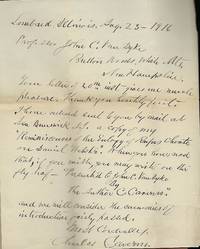 Lombard Illinois. Aug. 23 - 1916
Professor John C. Van Dyke
Bretton Woods, White Mts
New Hampshire.
Your letter of 20th inst. gives me much
pleasure. Thank you
I have ordered sent to you by mail at
New Brunswick N.J. a copy of my
"Reminiscences of the Eulogy of Rufus Choate
on Daniel Webster".
that, if you wish, you may write on the
fly leaf - "Presented to John C. Van Dyke
By
The Author C. Caverno"
and we will consider the ceremonies of
introduction fairly passed.
Most Cordially
Charles Caverno.